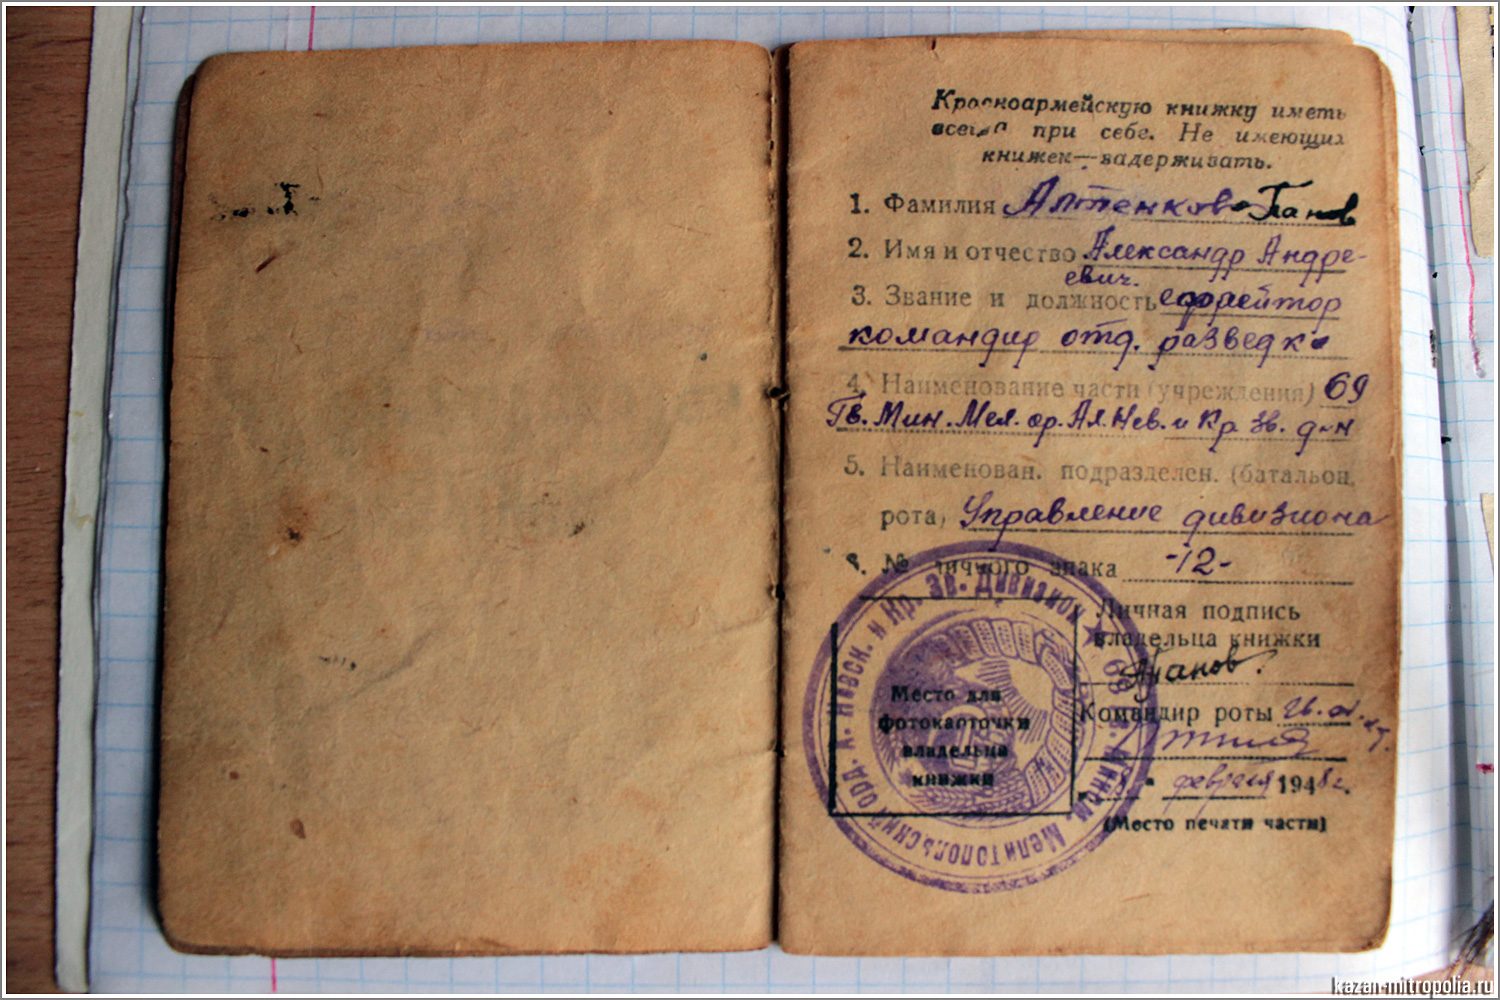 Красноармейскую книжку иметь
всегда при себе. Не имеющих
книжек—задерживать.
1. Фамилия Алтенков-Панов
2. Имя и отчество Александр Андре-
евич.
3. Звание и должность ефрейтор
командир отд. разведки
4. Наименование части (учреждения) 69
Гв. Мин. Мел. ор. Ал. Нев. и Кр. Зв. д-н
5. Наименован. подразделен. (батальон,
рота) Управление дивизиона
6. № личного знака -12-
Личная подпись
владельца книжки
Панов.
Командир роты
февраля 1948 г.
(Место печати части)
Место для
фотокарточки
владельца
книжки
69 Гв. Мином. Мелитопольский орд. А. Невск. и Кр. Зв. Дивизион
kazan-mitropolia.ru